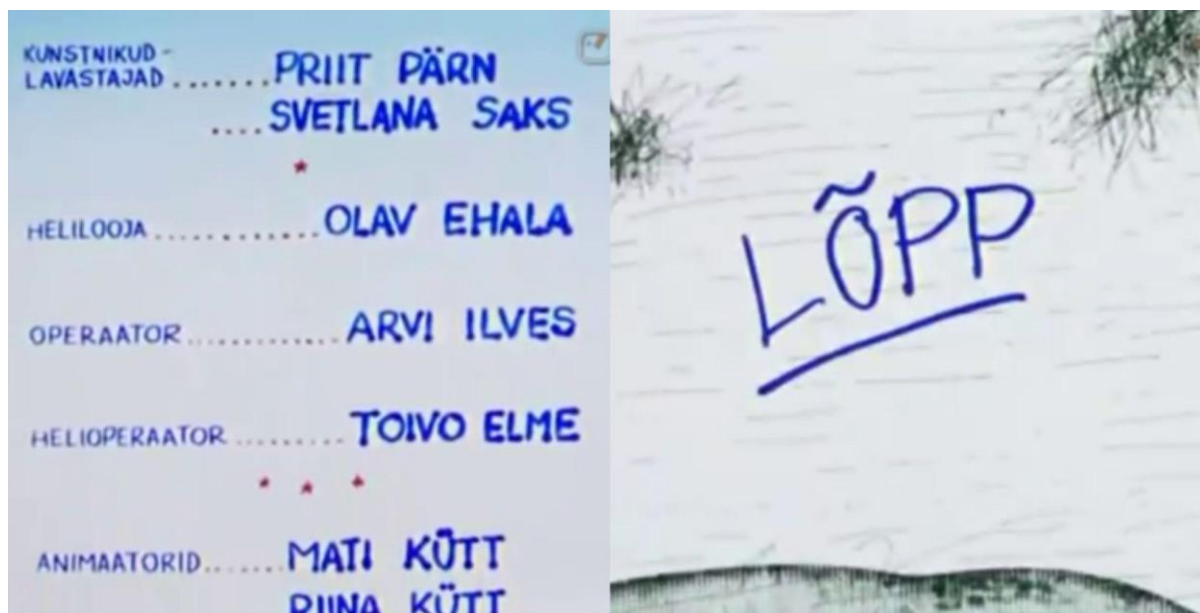 KUNSTNIKUD-
LAVASTAJAD ....... PRIIT PÄRN
.... SVETLANA SAKS
*
HELILOOJA ............. OLAV EHALA
OPERAATOR ............. ARVI ILVES
HELIOPERAATOR ......... TOIVO ELME
* * *
ANIMAATORID ....... MATI KÜTT
RIINA KÜTT
LÕPP